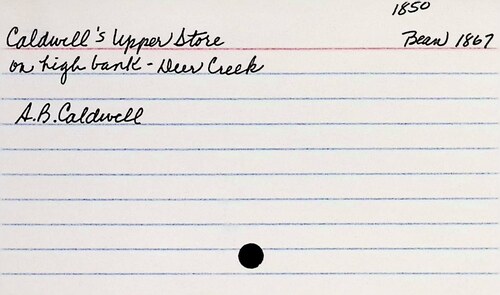 1850
Caldwell's Upper Store Bean 1867
on high bank - Deer Creek
A.B. Caldwell